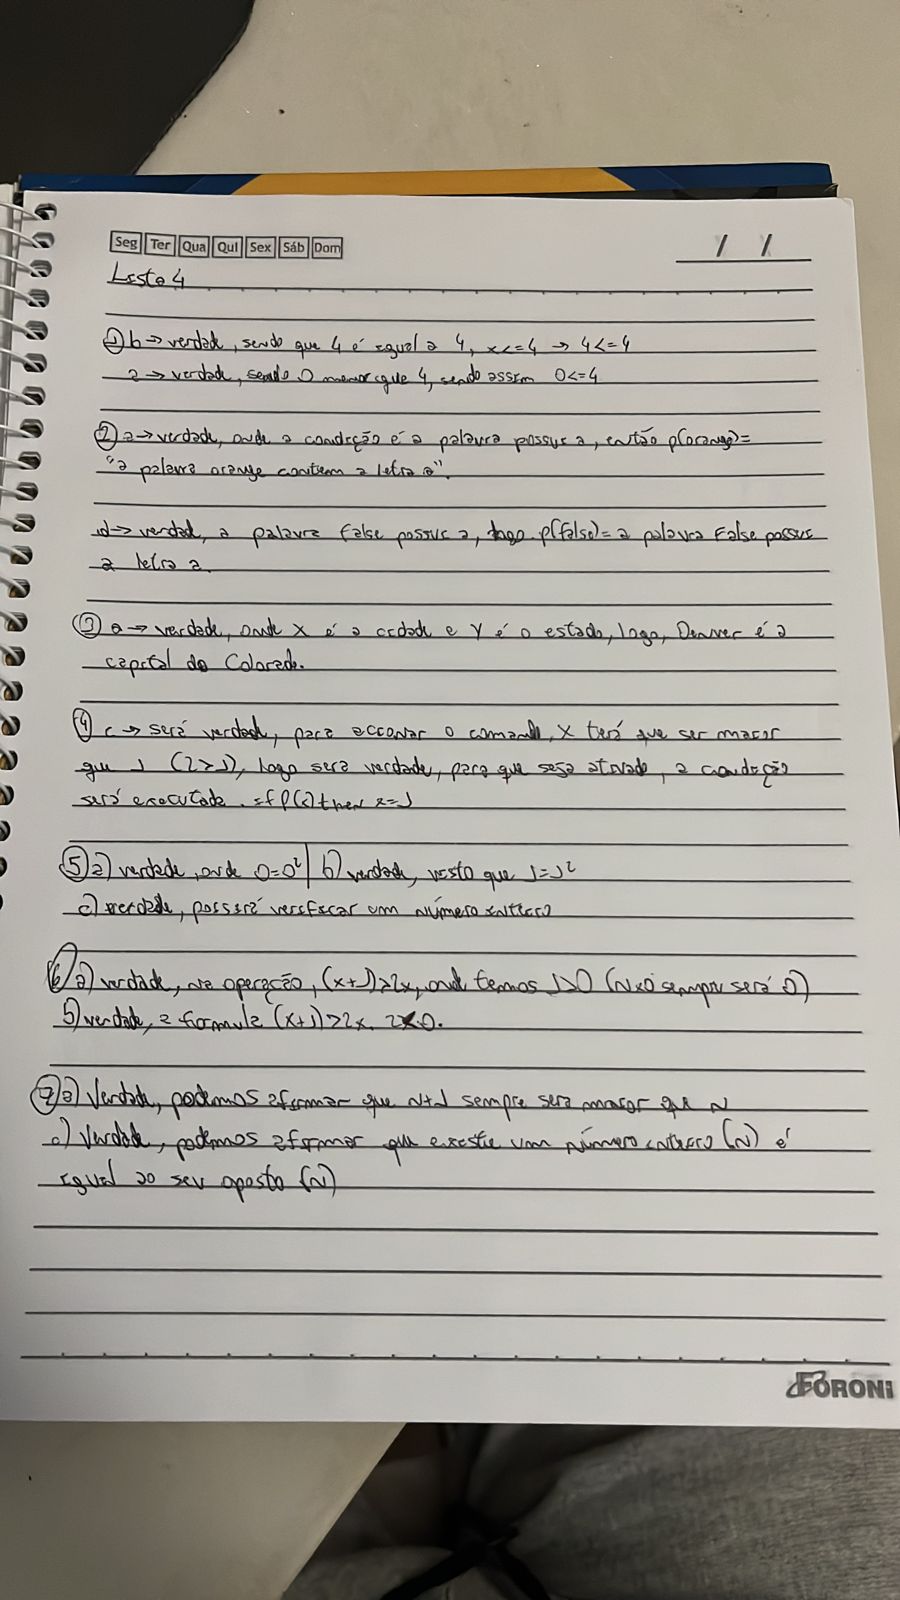 Seg Ter Qua Qui Sex Sáb Dom
/ /
Lista 4
① b → verdade, sendo que 4 é igual a 4, x<=4 → 4<=4
a → verdade, sendo 0 menor que 4, sendo assim 0<=4
② a → verdade, onde a condição é a palavra possui a, então p(orange)=
"a palavra orange contem a letra a".
d → verdade, a palavra false possui a, logo p(false)= a palavra False possui
a letra a.
③ a → verdade, onde X é a cidade e Y é o estado, logo, Denver é a
capital do Colorado.
④ c → será verdade, para acionar o comando, X terá que ser maior
que 1 (2>1), logo será verdade, para que seja ativado, a condição
será executada. if P(x) then x=1
⑤ a) verdade, onde 0=0² | b) verdade, visto que 1=1²
c) verdade, possui verificar um número inteiro
⑥ a) verdade, na operação, (x+1)>2x, onde temos 1>0 (Nx0 sempre será 0)
b) verdade, a formula (x+1)>2x.
⑦ a) Verdade, podemos afirmar que N+1 sempre será maior que N
c) Verdade, podemos afirmar que existe um número inteiro (N) é
igual ao seu oposto (N)
FORONI